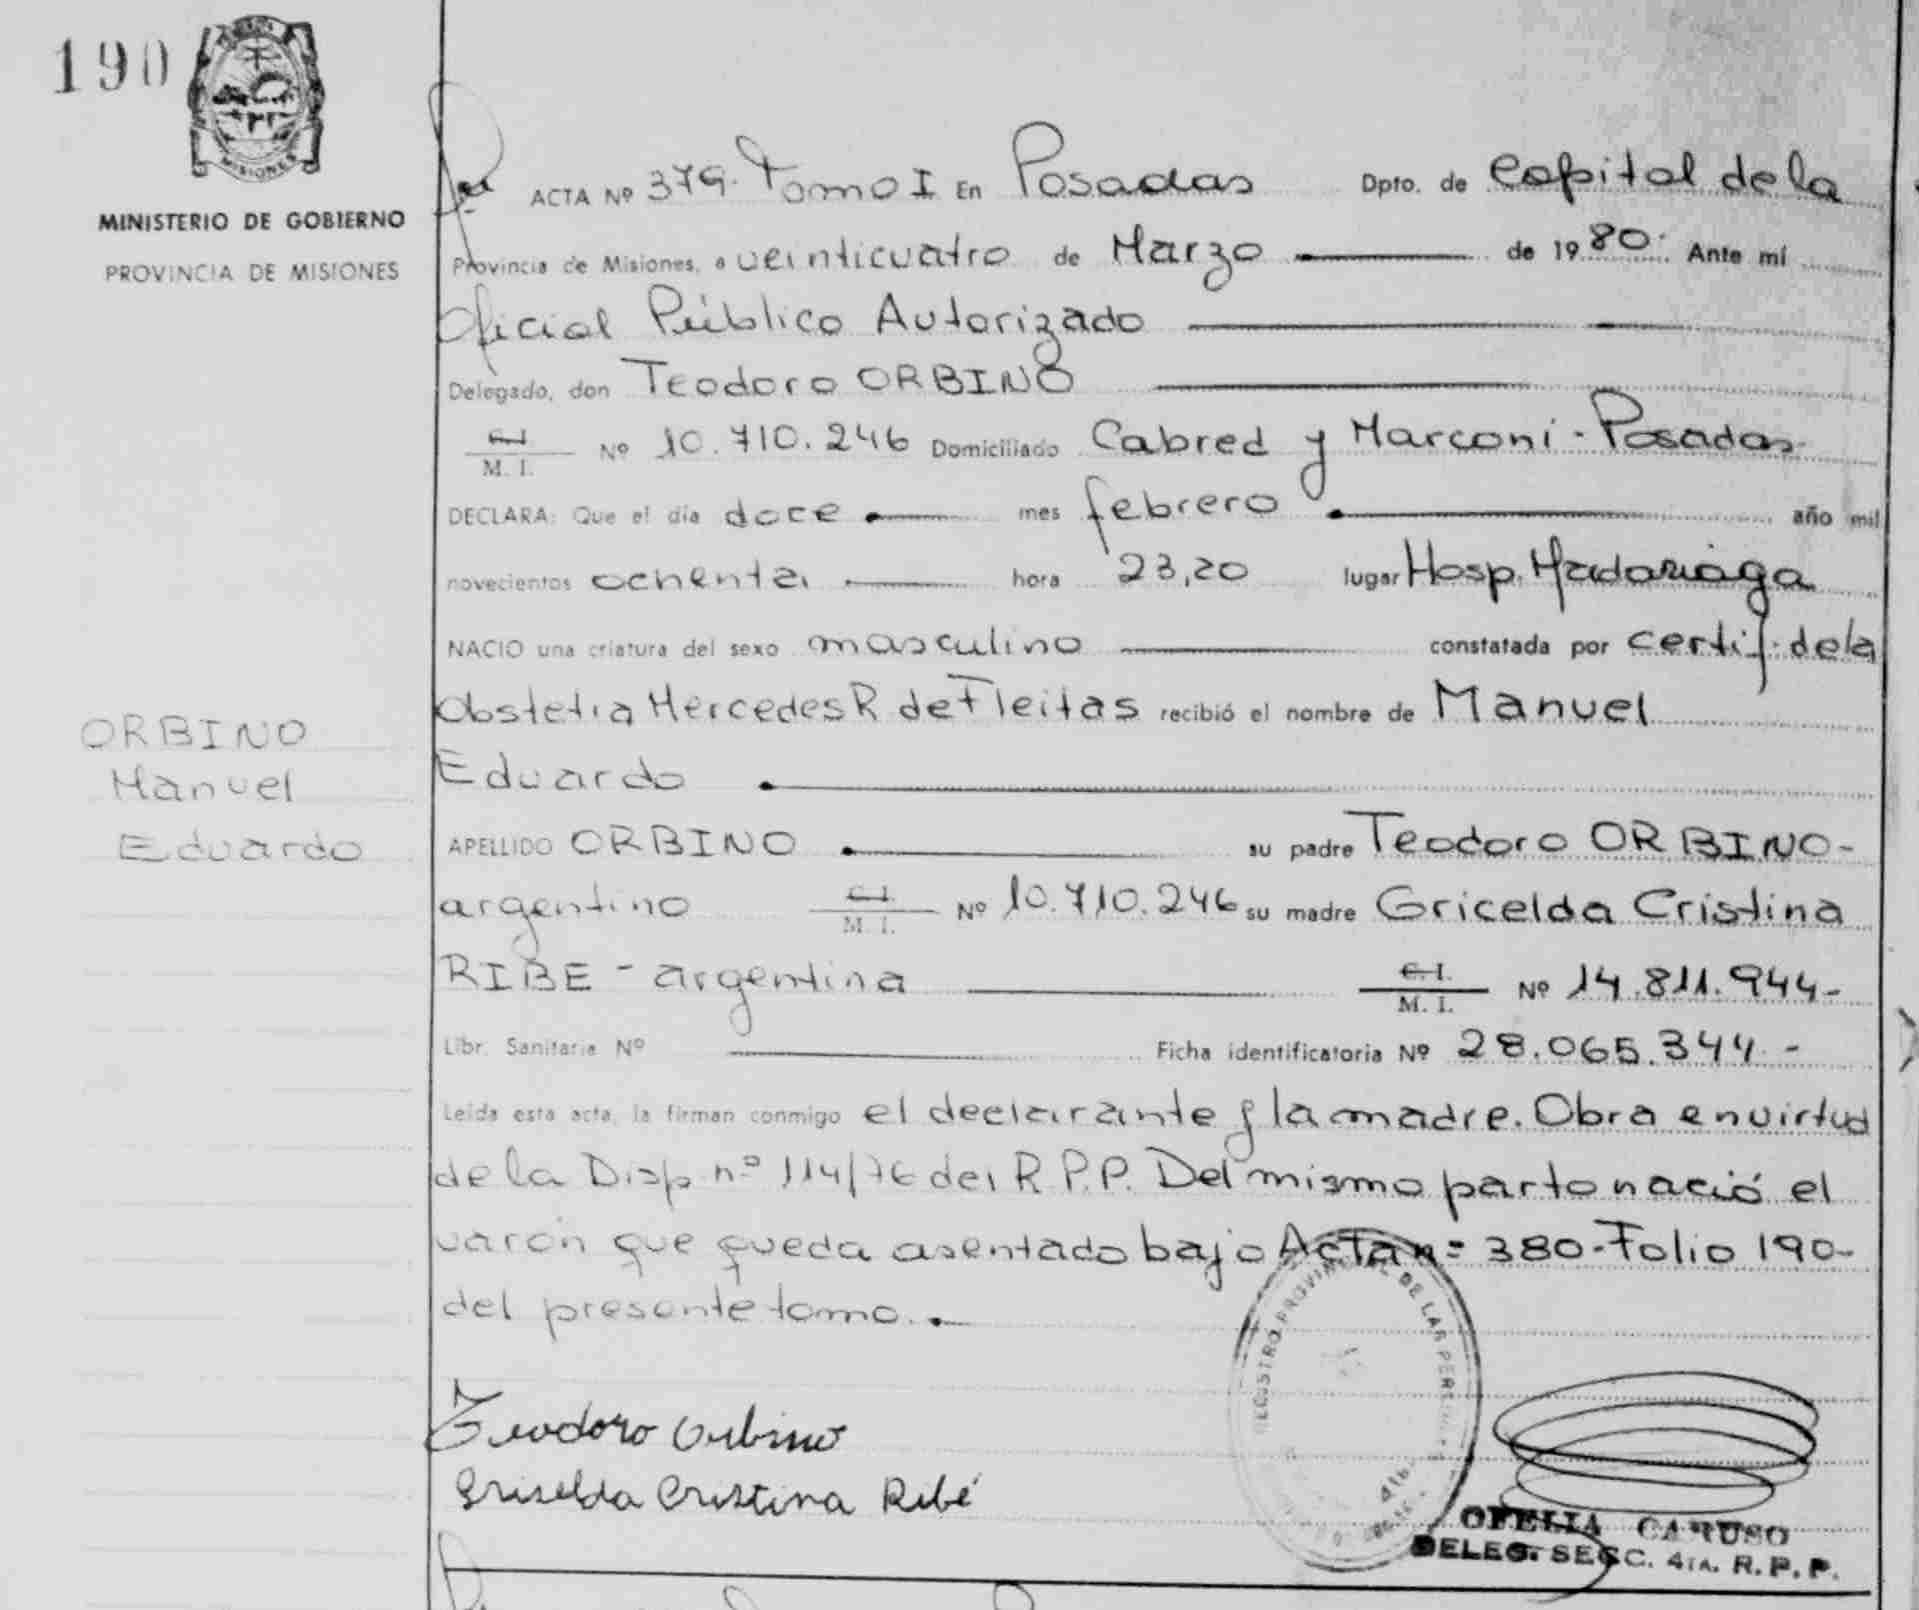 190
MISIONES
MINISTERIO DE GOBIERNO
PROVINCIA DE MISIONES
ACTA Nº 379. Tomo I En Posadas Dpto. de Capital de la
Provincia de Misiones, a veinticuatro de Marzo de 1980. Ante mí
Oficial Público Autorizado
Delegado, don Teodoro ORBINO
C.I. M. I. Nº 10.710.246 Domiciliado Cabred y Marconi - Posadas
DECLARA: Que el día doce mes febrero año mil
novecientos ochenta hora 23,20 lugar Hosp. Madariaga
NACIO una criatura del sexo masculino constatada por certif. de la
Obstetra Mercedes R de Fleitas recibió el nombre de Manuel
Eduardo
ORBINO
Manuel
Eduardo
APELLIDO ORBINO su padre Teodoro ORBINO-
argentino C.I. M. I. Nº 10.710.246 su madre Gricelda Cristina
RIBE - argentina C.I. M. I. Nº 14.811.944-
Libr. Sanitaria Nº Ficha identificatoria Nº 28.065.344.-
Leída esta acta, la firman conmigo el declarante y la madre. Obra en virtud
de la Disp. nº 114/76 del R.P.P. Del mismo parto nació el
varón que queda asentado bajo Acta nº 380-Folio 190-
del presente tomo.
Teodoro Orbino
Griselda Cristina Ribé
REGISTRO PROVINCIAL DE LAS PERSONAS
OFELIA CARUSO
DELEG. SECC. 4TA. R.P.P.